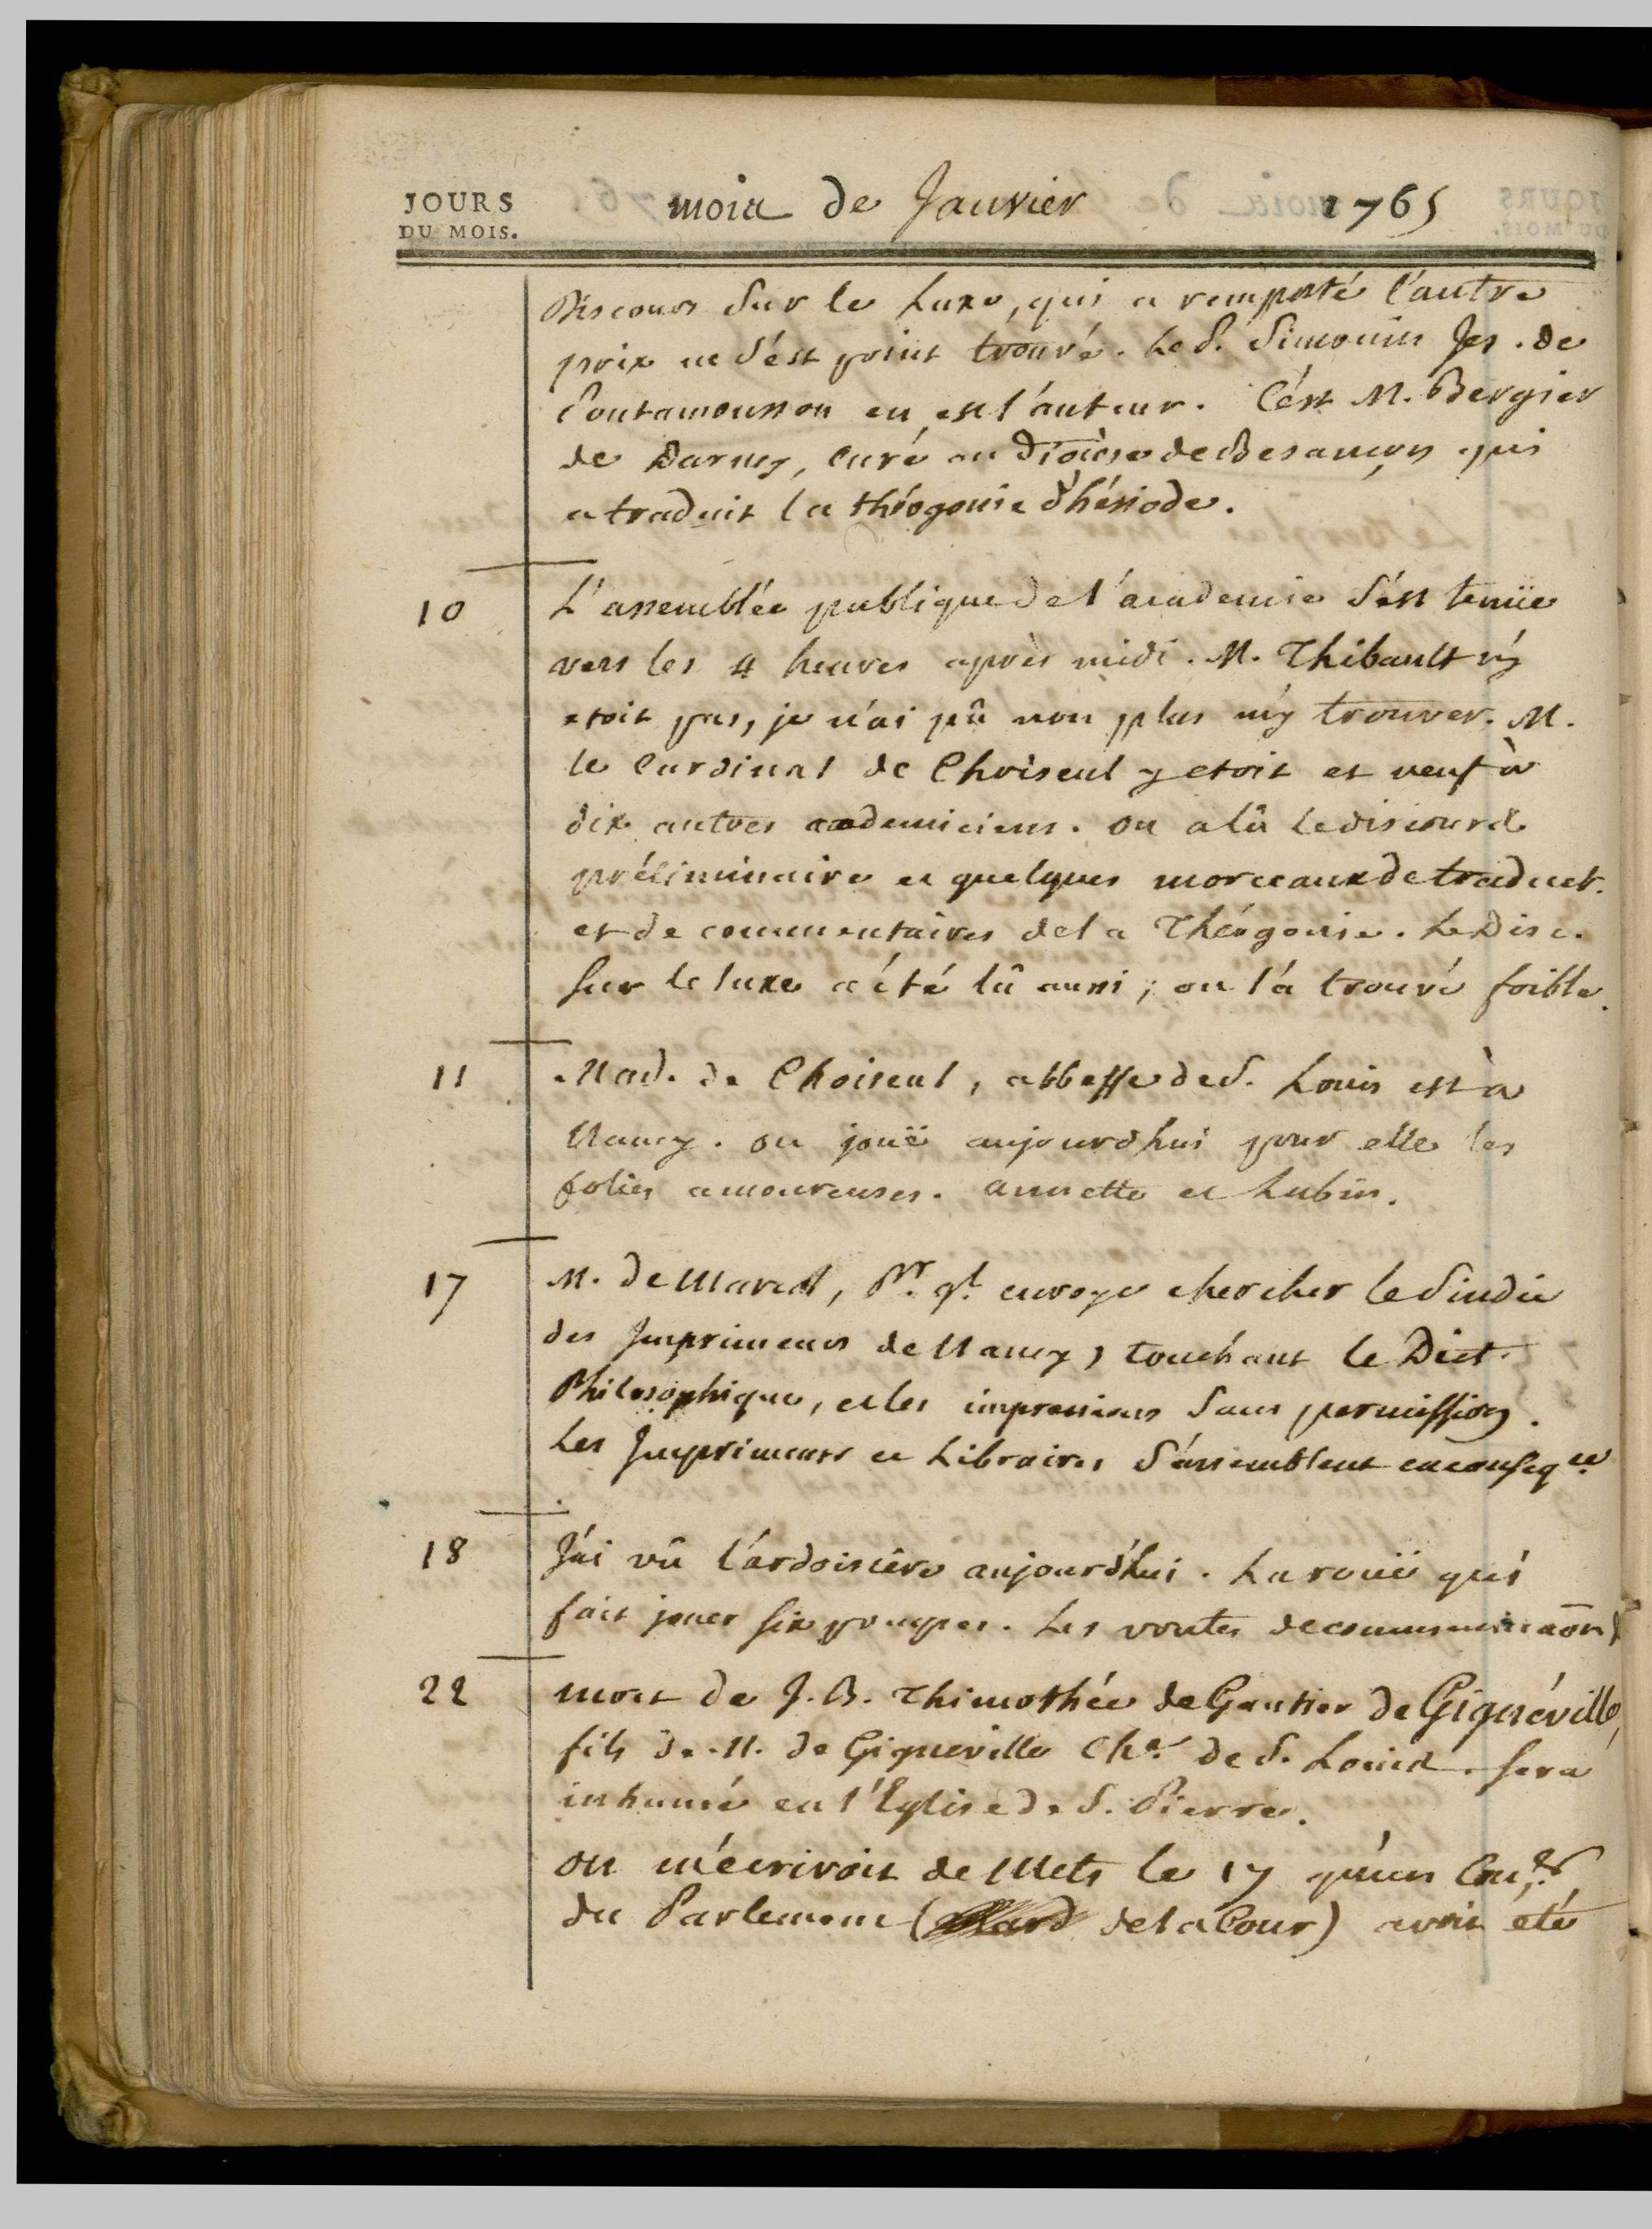 JOURS
DU MOIS.
mois de Janvier 1765
Discours Sur le Luxe, qui a remporté l'autre
prix ne S'est point trouvé. Le P. Simonin Jes. de
Pontamousson en est l'auteur. C'est M. Bergier
de Darney, curé au Diocèse de Besançon qui
a traduit la théogonie d'hésiode.
10 L'assemblée publique de l'academie S'est tenüe
vers les 4 heures après midi. M. Thibault n'y
etoit pas, je n'ai pû non plus m'y trouver. M.
le Cardinal de Choiseul y etoit et neuf à
dix autres academiciens. on a lû le discours
préliminaire et quelques morceaux de traduct.
et de commentaires de la Théogonie. Le Disc.
sur le luxe a été lû aussi ; on l'a trouvé foible.
11 Mad. de Choiseul, abbesse de S. Louis est à
Nancy. on jouë aujourdhui pour elle les
folies amoureuses. annette et Lubin.
17 M. de Marcol, Pr. gl. envoye chercher le Sindic
des Imprimeurs de Nancy, touchant le Dict.
Philosophique, et les impressions Sans permission.
Les Imprimeurs et Libraires S'assemblent en conseqce
18 J'ai vû l'ardoisière aujourd'hui. La rouë qui
fait jouer six pompes. Les voutes de communicaõn
22 mort de J. B. Thimothée de Gautier de Gignéville,
fils de M. de Gigneville Cher. de S. Louis. sera
inhumé en l'Eglise de S. Pierre.
on m'écrivoit de Mets le 17 qu'un Coner
du Parlement ( de la Cour) avoit eté